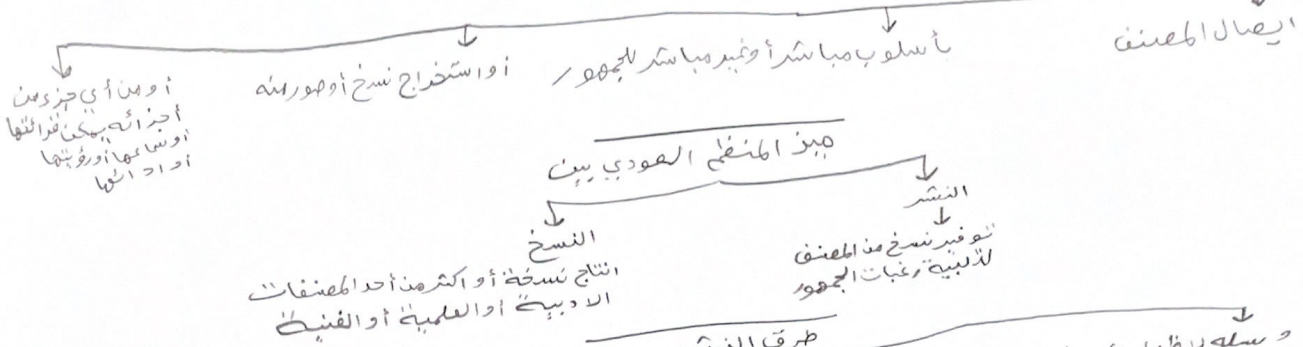 ايصال المصنف
بأسلوب مباشر أو غير مباشر للجمهور
أو استخراج نسخ أو صور منه
أو من أي جزء من
أجزائه يمكن قرائتها
أو سماعها أو رؤيتها
أو ادائها
ميز المنظم السعودي بين
النشر
توفير نسخ من المصنف
لتلبية رغبات الجمهور
النسخ
انتاج نسخة أو اكثر من أحد المصنفات
الادبية أو العلمية أو الفنية
طرق النشر